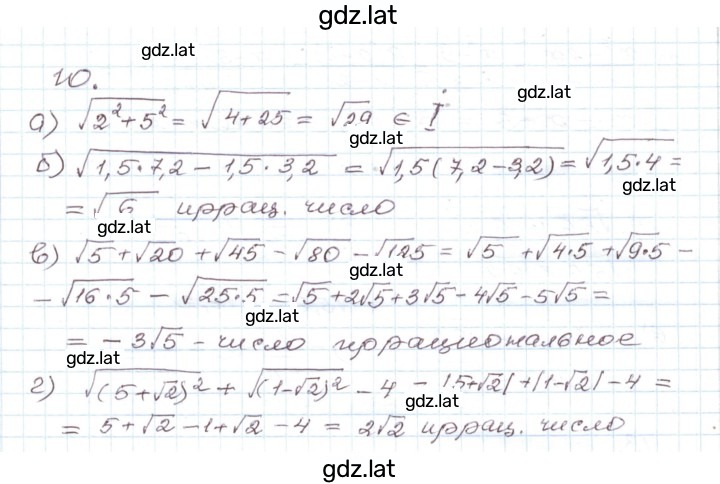 gdz.lat
gdz.lat
10.
gdz.lat
а) √(2² + 5²) = √(4+25) = √29 ∈ I
gdz.lat
б) √(1,5·7,2 − 1,5·3,2) = √(1,5(7,2−3,2)) = √(1,5·4) =
gdz.lat
= √6 иррац. число
gdz.lat
в) √5 + √20 + √45 − √80 − √125 = √5 + √(4·5) + √(9·5) −
gdz.lat
− √(16·5) − √(25·5) = √5 + 2√5 + 3√5 − 4√5 − 5√5 =
gdz.lat
= −3√5 − число иррациональное
gdz.lat
г) √((5+√2)²) + √((1−√2)²) − 4 − |5+√2| + |1−√2| − 4 =
gdz.lat
= 5+√2 −1+√2 −4 = 2√2 иррац. число
gdz.lat